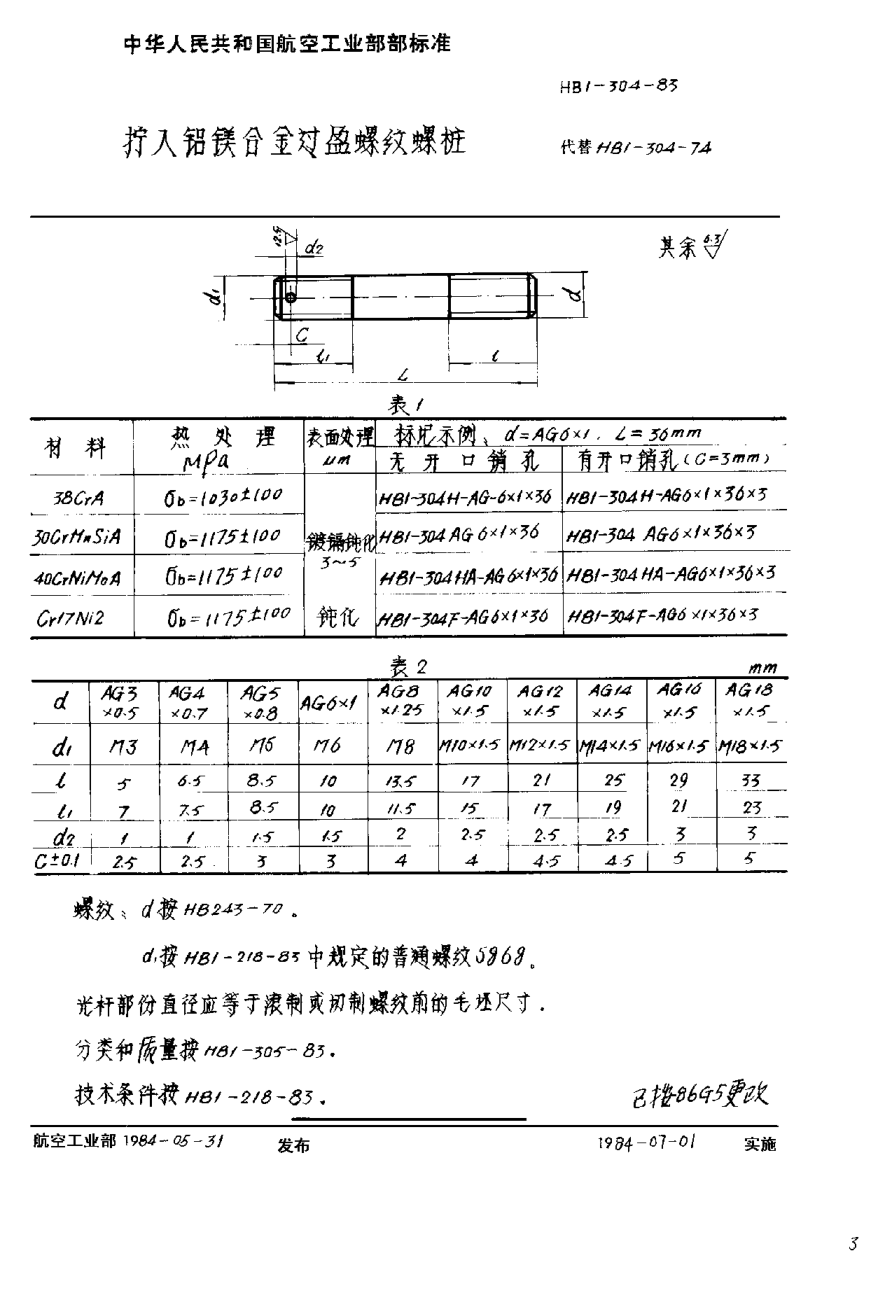 中华人民共和国航空工业部部标准
HB1-304-83
拧入铝镁合金过盈螺纹螺桩
代替 HB1-304-74
其余 6.3
12.5
d2
d1
d
C
l1
l
L
表1
材 料 热 处 理 MPa 表面处理 μm 标记示例: d=AG6×1, L=36mm
无开口销孔 有开口销孔(C=3mm)
38CrA σb=1030±100 HB1-304H-AG-6×1×36 HB1-304H-AG6×1×36×3
30CrMnSiA σb=1175±100 镀镉钝化 3~5 HB1-304 AG6×1×36 HB1-304 AG6×1×36×3
40CrNiMoA σb=1175±100 HB1-304HA-AG6×1×36 HB1-304HA-AG6×1×36×3
Cr17Ni2 σb=1175±100 钝化 HB1-304F-AG6×1×36 HB1-304F-AG6×1×36×3
表2 mm
d AG3×0.5 AG4×0.7 AG5×0.8 AG6×1 AG8×1.25 AG10×1.5 AG12×1.5 AG14×1.5 AG16×1.5 AG18×1.5
d1 M3 M4 M5 M6 M8 M10×1.5 M12×1.5 M14×1.5 M16×1.5 M18×1.5
l 5 6.5 8.5 10 13.5 17 21 25 29 33
l1 7 7.5 8.5 10 11.5 15 17 19 21 23
d2 1 1 1.5 1.5 2 2.5 2.5 2.5 3 3
C±0.1 2.5 2.5 3 3 4 4 4.5 4.5 5 5
螺纹: d按HB243-70。
d1按HB1-218-83中规定的普通螺纹5g6g。
光杆部份直径应等于滚制或切制螺纹前的毛坯尺寸.
分类和质量按HB1-305-83.
技术条件按HB1-218-83.
已按86G5更改
航空工业部 1984-05-31 发布 1984-07-01 实施
3